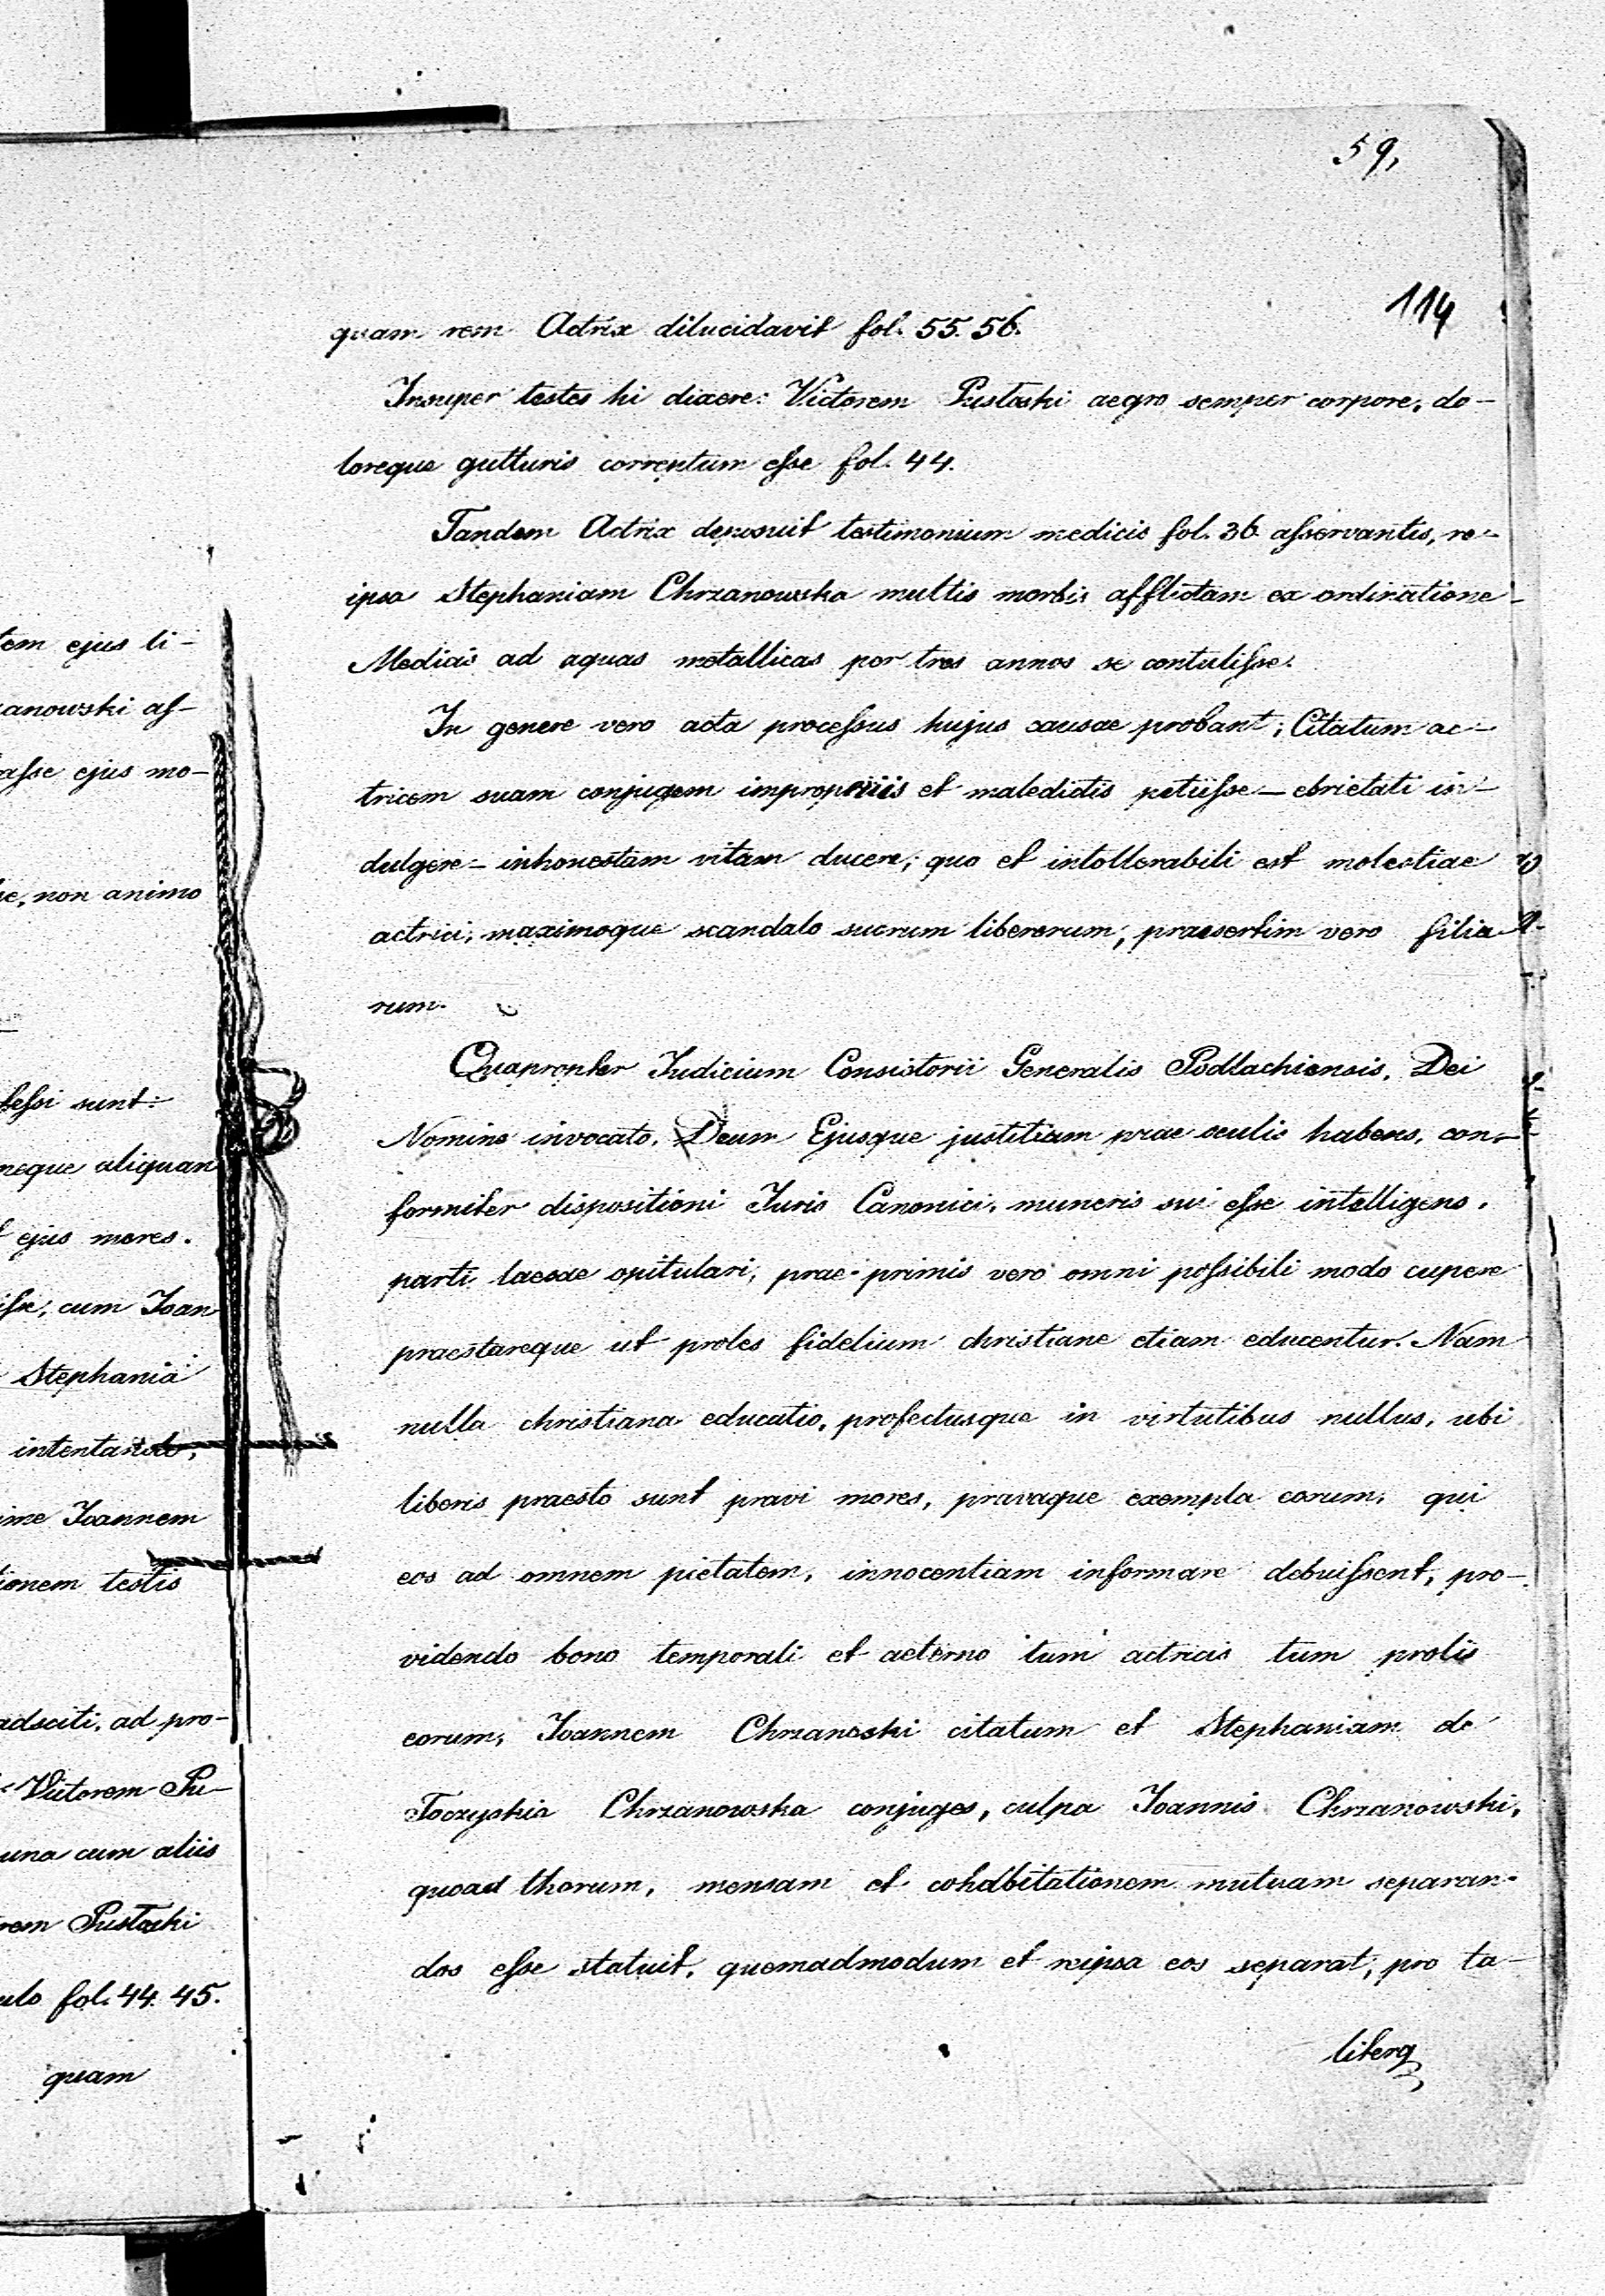 59,
114
quam rem Actrix dilucidavit fol. 55. 56.
Insuper testes hi dixere: Victorem Pustoski aegro semper corpore, do-
loreque gutturis correptum esse fol. 44.
Tandem Actrix deposuit testimonium medicis fol. 36 asservantis, re-
ipsa Stephaniam Chrzanowska multis morbis afflictam ex ordinatione
Medicis ad aquas metallicas per tres annos se contulisse.
In genere vero acta processus hujus causae probant; Citatum ac-
tricem suam conjugem impropriis et maledictis petiisse – ebrietati in-
dulgere – inhonestam vitam ducere; quo et intollerabili est molestiae
actrici, maximoque scandalo suorum liberorum, praesertim vero filia-
rum.
Quapropter Judicium Consistorii Generalis Podlachiensis, Dei
Nomine invocato, Deum Ejusque justitiam prae oculis habens, con-
formiter dispositioni Juris Canonici, muneris sui esse intelligens,
parti laesae opitulari, prae primis vero omni possibili modo cupere
praestareque ut proles fidelium christiane etiam educentur. Nam
nulla christiana educatio, profectusque in virtutibus nullus, ubi
liberis praesto sunt pravi mores, pravaque exempla eorum, qui
eos ad omnem pietatem, innocentiam informare debuissent, pro-
videndo bono temporali et aeterno tum actricis tum prolis
eorum, Joannem Chrzanoski citatum et Stephaniam de
Toczyskie Chrzanowska conjuges, culpa Joannis Chrzanowski,
quoad thorum, mensam et cohabitationem mutuam separan-
dos esse statuit, quemadmodum et reipsa eos separat, pro ta-
literq
tem ejus li-
zanowski as-
asse ejus mo-
se, non animo
fessi sunt:
neque aliquan
ejus mores.
isse, cum Joan
Stephania
intentando,
ime Joannem
tionem testis
adsciti, ad pro-
Victorem Pu-
una cum aliis
rem Pustoski
ulo fol. 44. 45.
quam